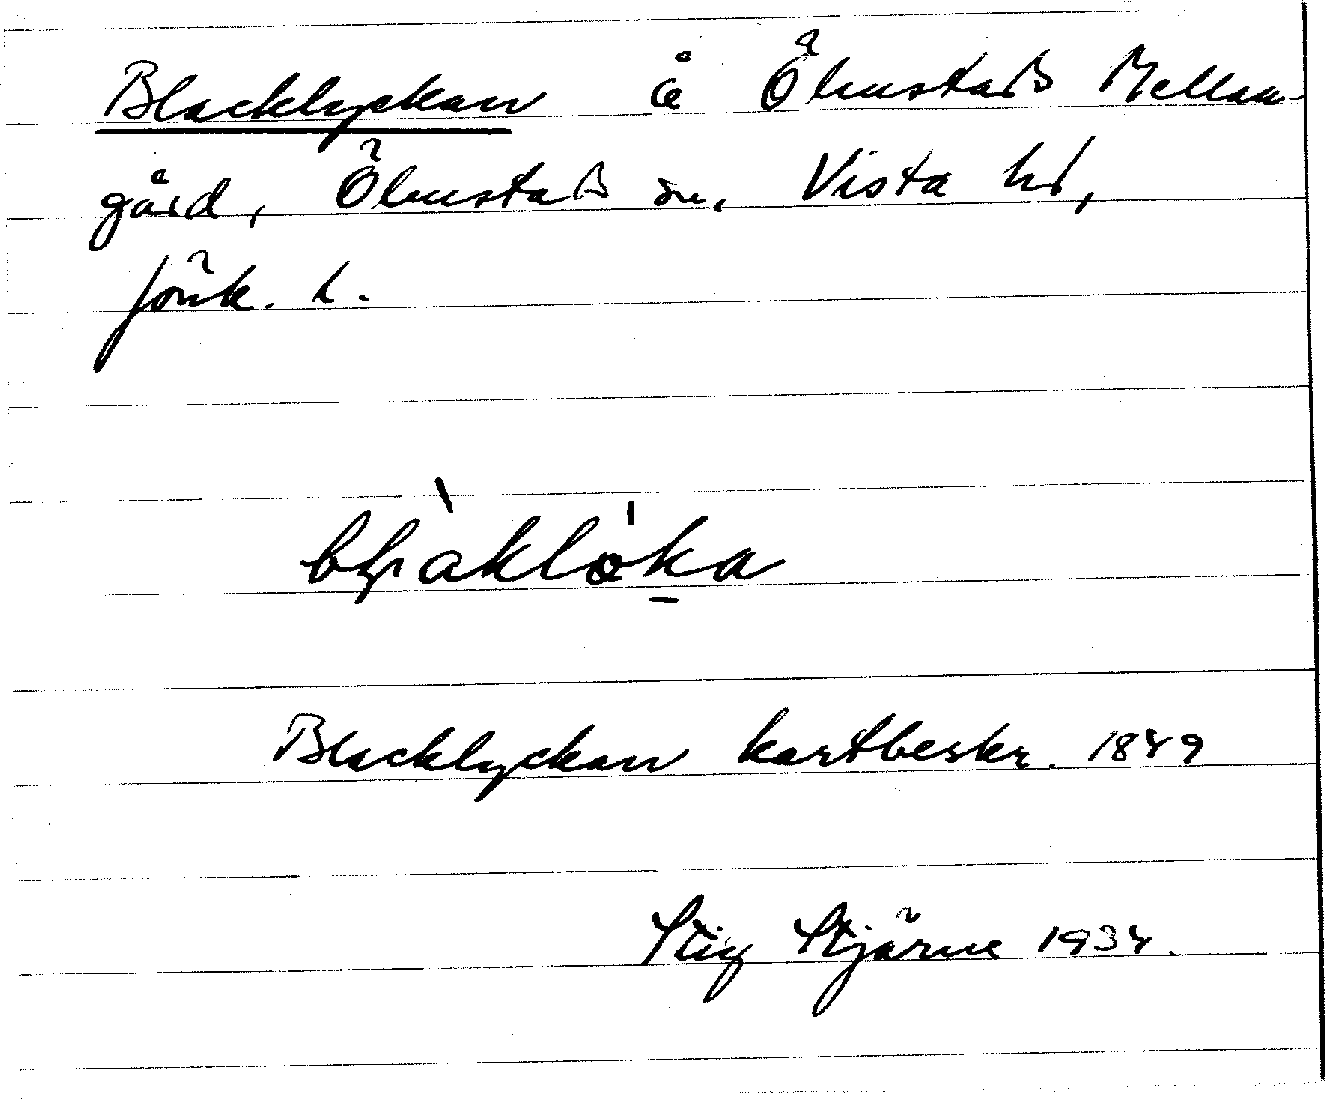 Blacklyckan å Ölmstads Mellan-
gård, Ölmstads sn, Vista hd,
Jönk. l.
Blacklyckan kartbeskr. 1849
Stig Stjärne 1934.